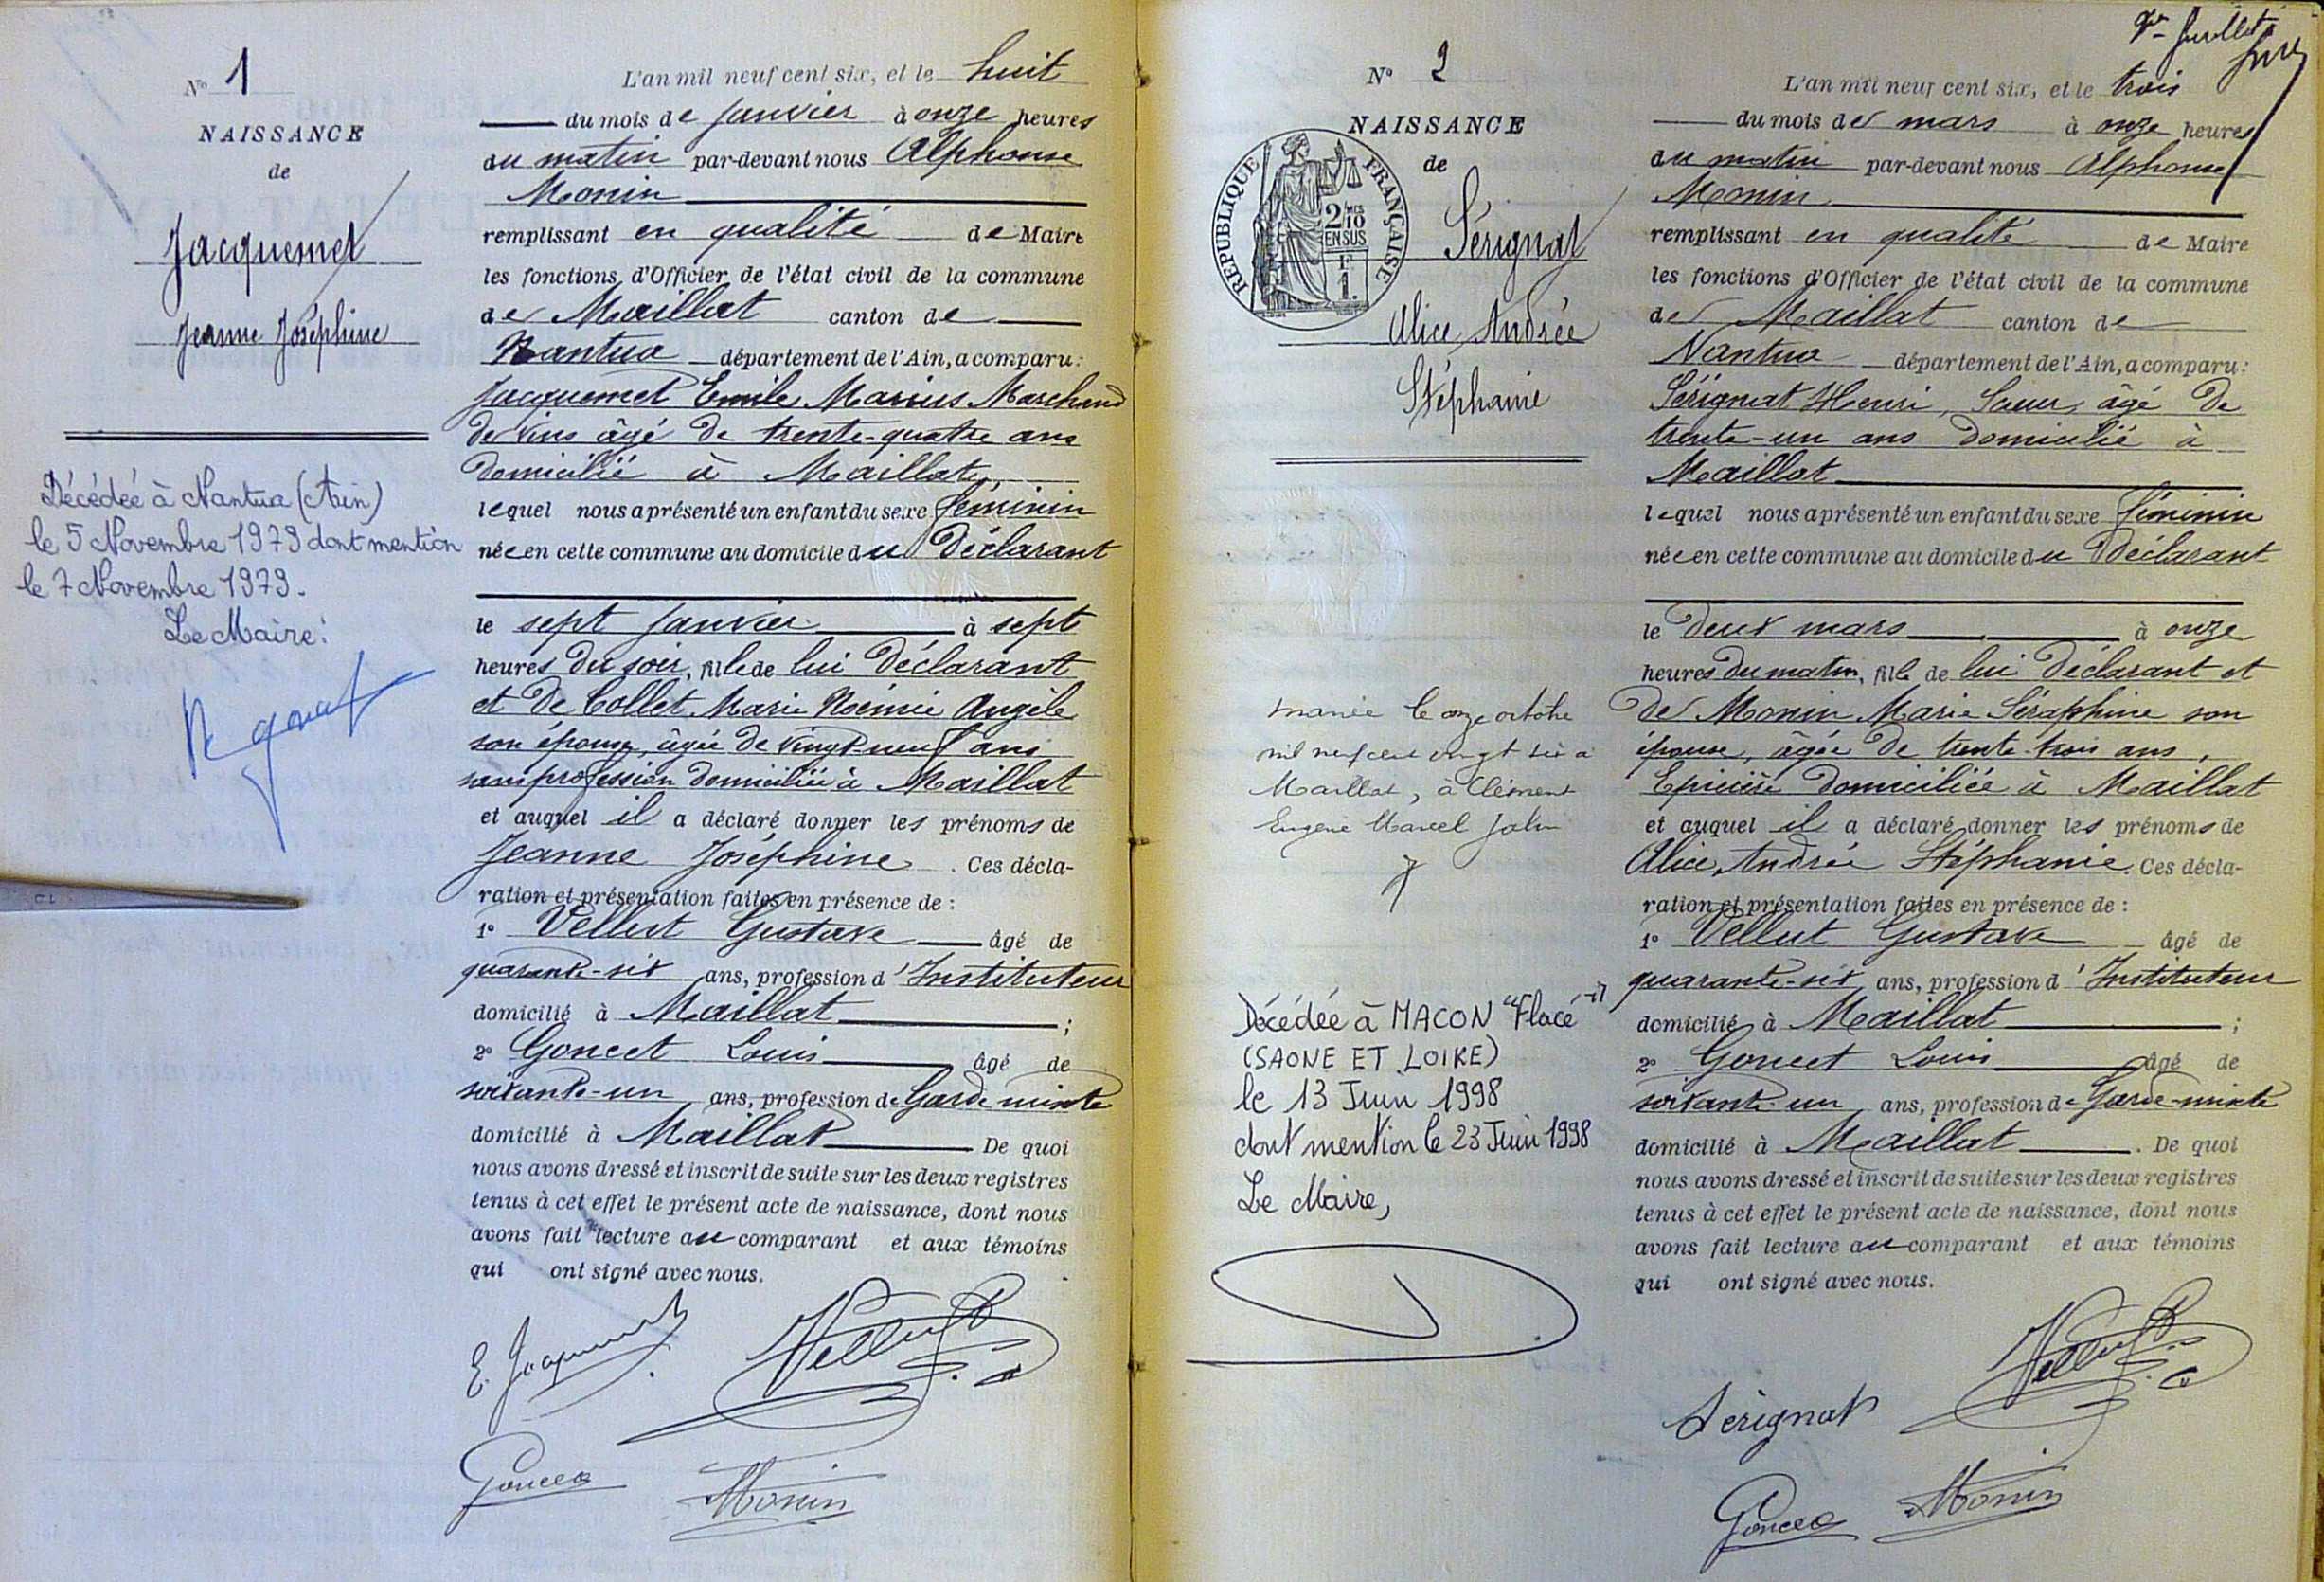 N° 1
NAISSANCE
de
Jacquemet
Jeanne Joséphine
Décédée à Nantua (Ain)
le 5 Novembre 1979 dont mention
le 7 Novembre 1979.
Le Maire:
L'an mil neuf cent six, et le huit
du mois de Janvier à onze heures
du matin par-devant nous Alphonse
Monin
remplissant en qualité de Maire
les fonctions d'Officier de l'état civil de la commune
de Maillat canton de
Nantua département de l'Ain, a comparu:
Jacquemet Emile Marius Marchand
de vins âgé de trente-quatre ans
domicilié à Maillat,
lequel nous a présenté un enfant du sexe féminin
née en cette commune au domicile du Déclarant
le sept Janvier à sept
heures du soir, fille de lui Déclarant
et de Collet Marie Noémie Angèle
son épouse, âgée de vingt-neuf ans
sans profession domiciliée à Maillat
et auquel il a déclaré donner les prénoms de
Jeanne Joséphine. Ces décla-
ration et présentation faites en présence de :
1° Vellut Gustave âgé de
quarante-six ans, profession d'Instituteur
domicilié à Maillat ;
2° Goncet Louis âgé de
soixante-un ans, profession de Garde mixte
domicilié à Maillat De quoi
nous avons dressé et inscrit de suite sur les deux registres
tenus à cet effet le présent acte de naissance, dont nous
avons fait lecture au comparant et aux témoins
qui ont signé avec nous.
E. Jacquemet Vellut
Goncet Monin
N° 2
NAISSANCE
de
RÉPUBLIQUE FRANÇAISE
2/10 MES
EN SUS
1 F.
Sérignat
Alice Andrée
Stéphanie
mariée le onze octobre
mil neuf cent vingt six à
Maillat, à Clément
Eugène Marcel
Décédée à MACON "Flacé"
(SAONE ET LOIRE)
le 13 Juin 1998
dont mention le 23 Juin 1998
Le Maire,
Juillet
L'an mil neuf cent six, et le trois
du mois de mars à onze heures
du matin par-devant nous Alphonse
Monin
remplissant en qualité de Maire
les fonctions d'Officier de l'état civil de la commune
de Maillat canton de
Nantua département de l'Ain, a comparu:
Sérignat Henri, âgé de
trente-un ans domicilié à
Maillat
lequel nous a présenté un enfant du sexe féminin
née en cette commune au domicile du Déclarant
le deux mars à onze
heures du matin, fille de lui Déclarant et
de Monin Marie Séraphine son
épouse, âgée de trente-trois ans,
Epicière domiciliée à Maillat
et auquel il a déclaré donner les prénoms de
Alice, Andrée Stéphanie. Ces décla-
ration et présentation faites en présence de :
1° Vellut Gustave âgé de
quarante-six ans, profession d'Instituteur
domicilié à Maillat ;
2° Goncet Louis âgé de
soixante-un ans, profession de Garde-mixte
domicilié à Maillat . De quoi
nous avons dressé et inscrit de suite sur les deux registres
tenus à cet effet le présent acte de naissance, dont nous
avons fait lecture au comparant et aux témoins
qui ont signé avec nous.
Sérignat Vellut
Goncet Monin